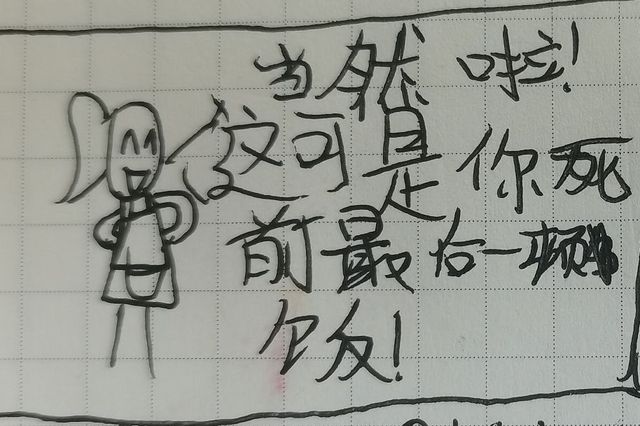 当然 啦!
这可是你死
前最后一顿
饭!